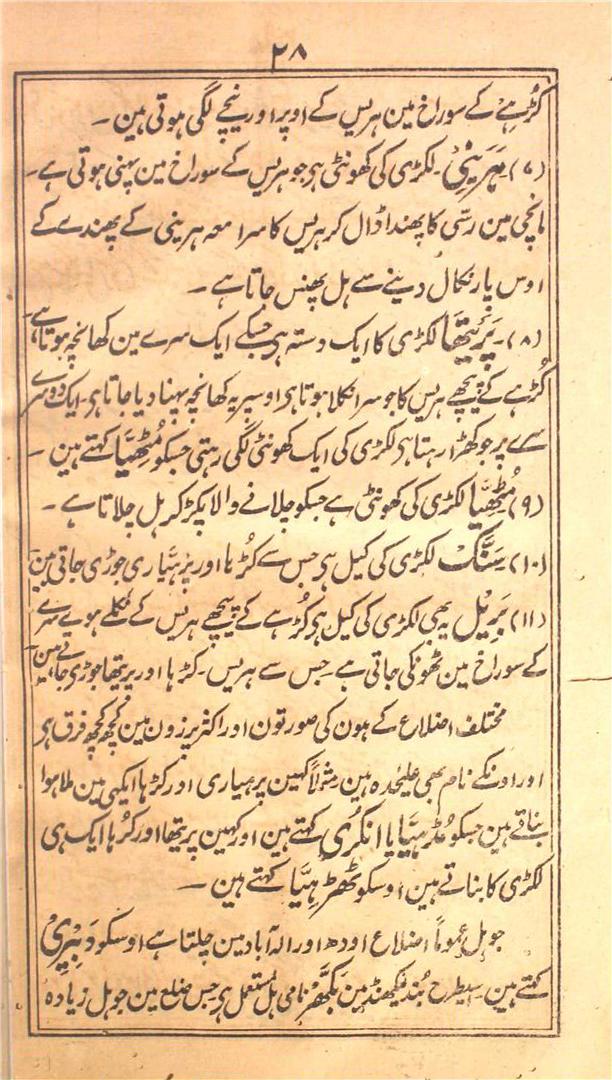 ۲۸
کڑہے کے سوراخ مین ہریس کے اوپر اور نیچے لگی ہوتی ہین ۔
(۷) ہرینی۔ لکڑی کی کھونٹی ہی جو ہریس کے سوراخ مین پہنی ہوتی ہے۔
مانچی مین رسّی کا پھندا ڈال کر ہریس کا سرا معہ ہرینی کے پھندے کے
اوس پار نکال دینے سے ہل پھنس جاتا ہے ۔
(۸) ۔پَرِیتھَا لکڑی کا ایک دستہ ہی جسکے ایک سرے مین کھانچہ ہوتا ہے
کُڑہے کے پیچھے ہریس کا جو سرا نکلا ہوتا ہی اوسپر یہ کھانچہ پہنا دیا جاتا ہی۔ ایک دوسرے
سرے پر جو کھڑا رہتا ہی لکڑی کی ایک کھونٹی لگی رہتی جسکو مُٹِھیَّا کہتے ہین ۔
(۹) مُٹِھیَّا لکڑی کی کھونٹی ہے جسکو چلانے والا پکڑ کر ہل چلاتا ہے ۔
(۱۰) سَنَّگ لکڑی کی کیل ہی جس سے کُڑہا اور پرہیَّاری جوڑی جاتی ہین
(۱۱) بَرَیْل یہ بھی لکڑی کی کیل ہی کُڑہے کے پیچھے ہریس کے نکلے ہوے سرے
کے سوراخ مین ٹھونکی جاتی ہے۔ جس سے ہریس۔ کڑہا اور پریتھا جوڑی جاتے ہین
مختلف اضلاع کے ہون کی صورتون اور اکثر پرزون مین کچھ کچھ فرق ہی
اور اونکے نام بھی علیحدہ ہین مثلاً کہین پرہیاری اور کڑہا ایکہی مین ملا ہوا
بناتے ہین جسکو مُڑہیَّا یا انکڑی کہتے ہین اور کہین پریتھا اور کڑہا ایک ہی
لکڑی کا بناتے ہین اوسکو ٹھڑہیَّا کہتے ہین ۔
جو ہل عموماً اضلاع اودھ اور الہ آباد مین چلتا ہے اوسکو
کہتے ہین۔ سیطرح بُندیلکھنڈ مین نامی ہل مستعمل ہی جس ضلع مین جو ہل زیادہ